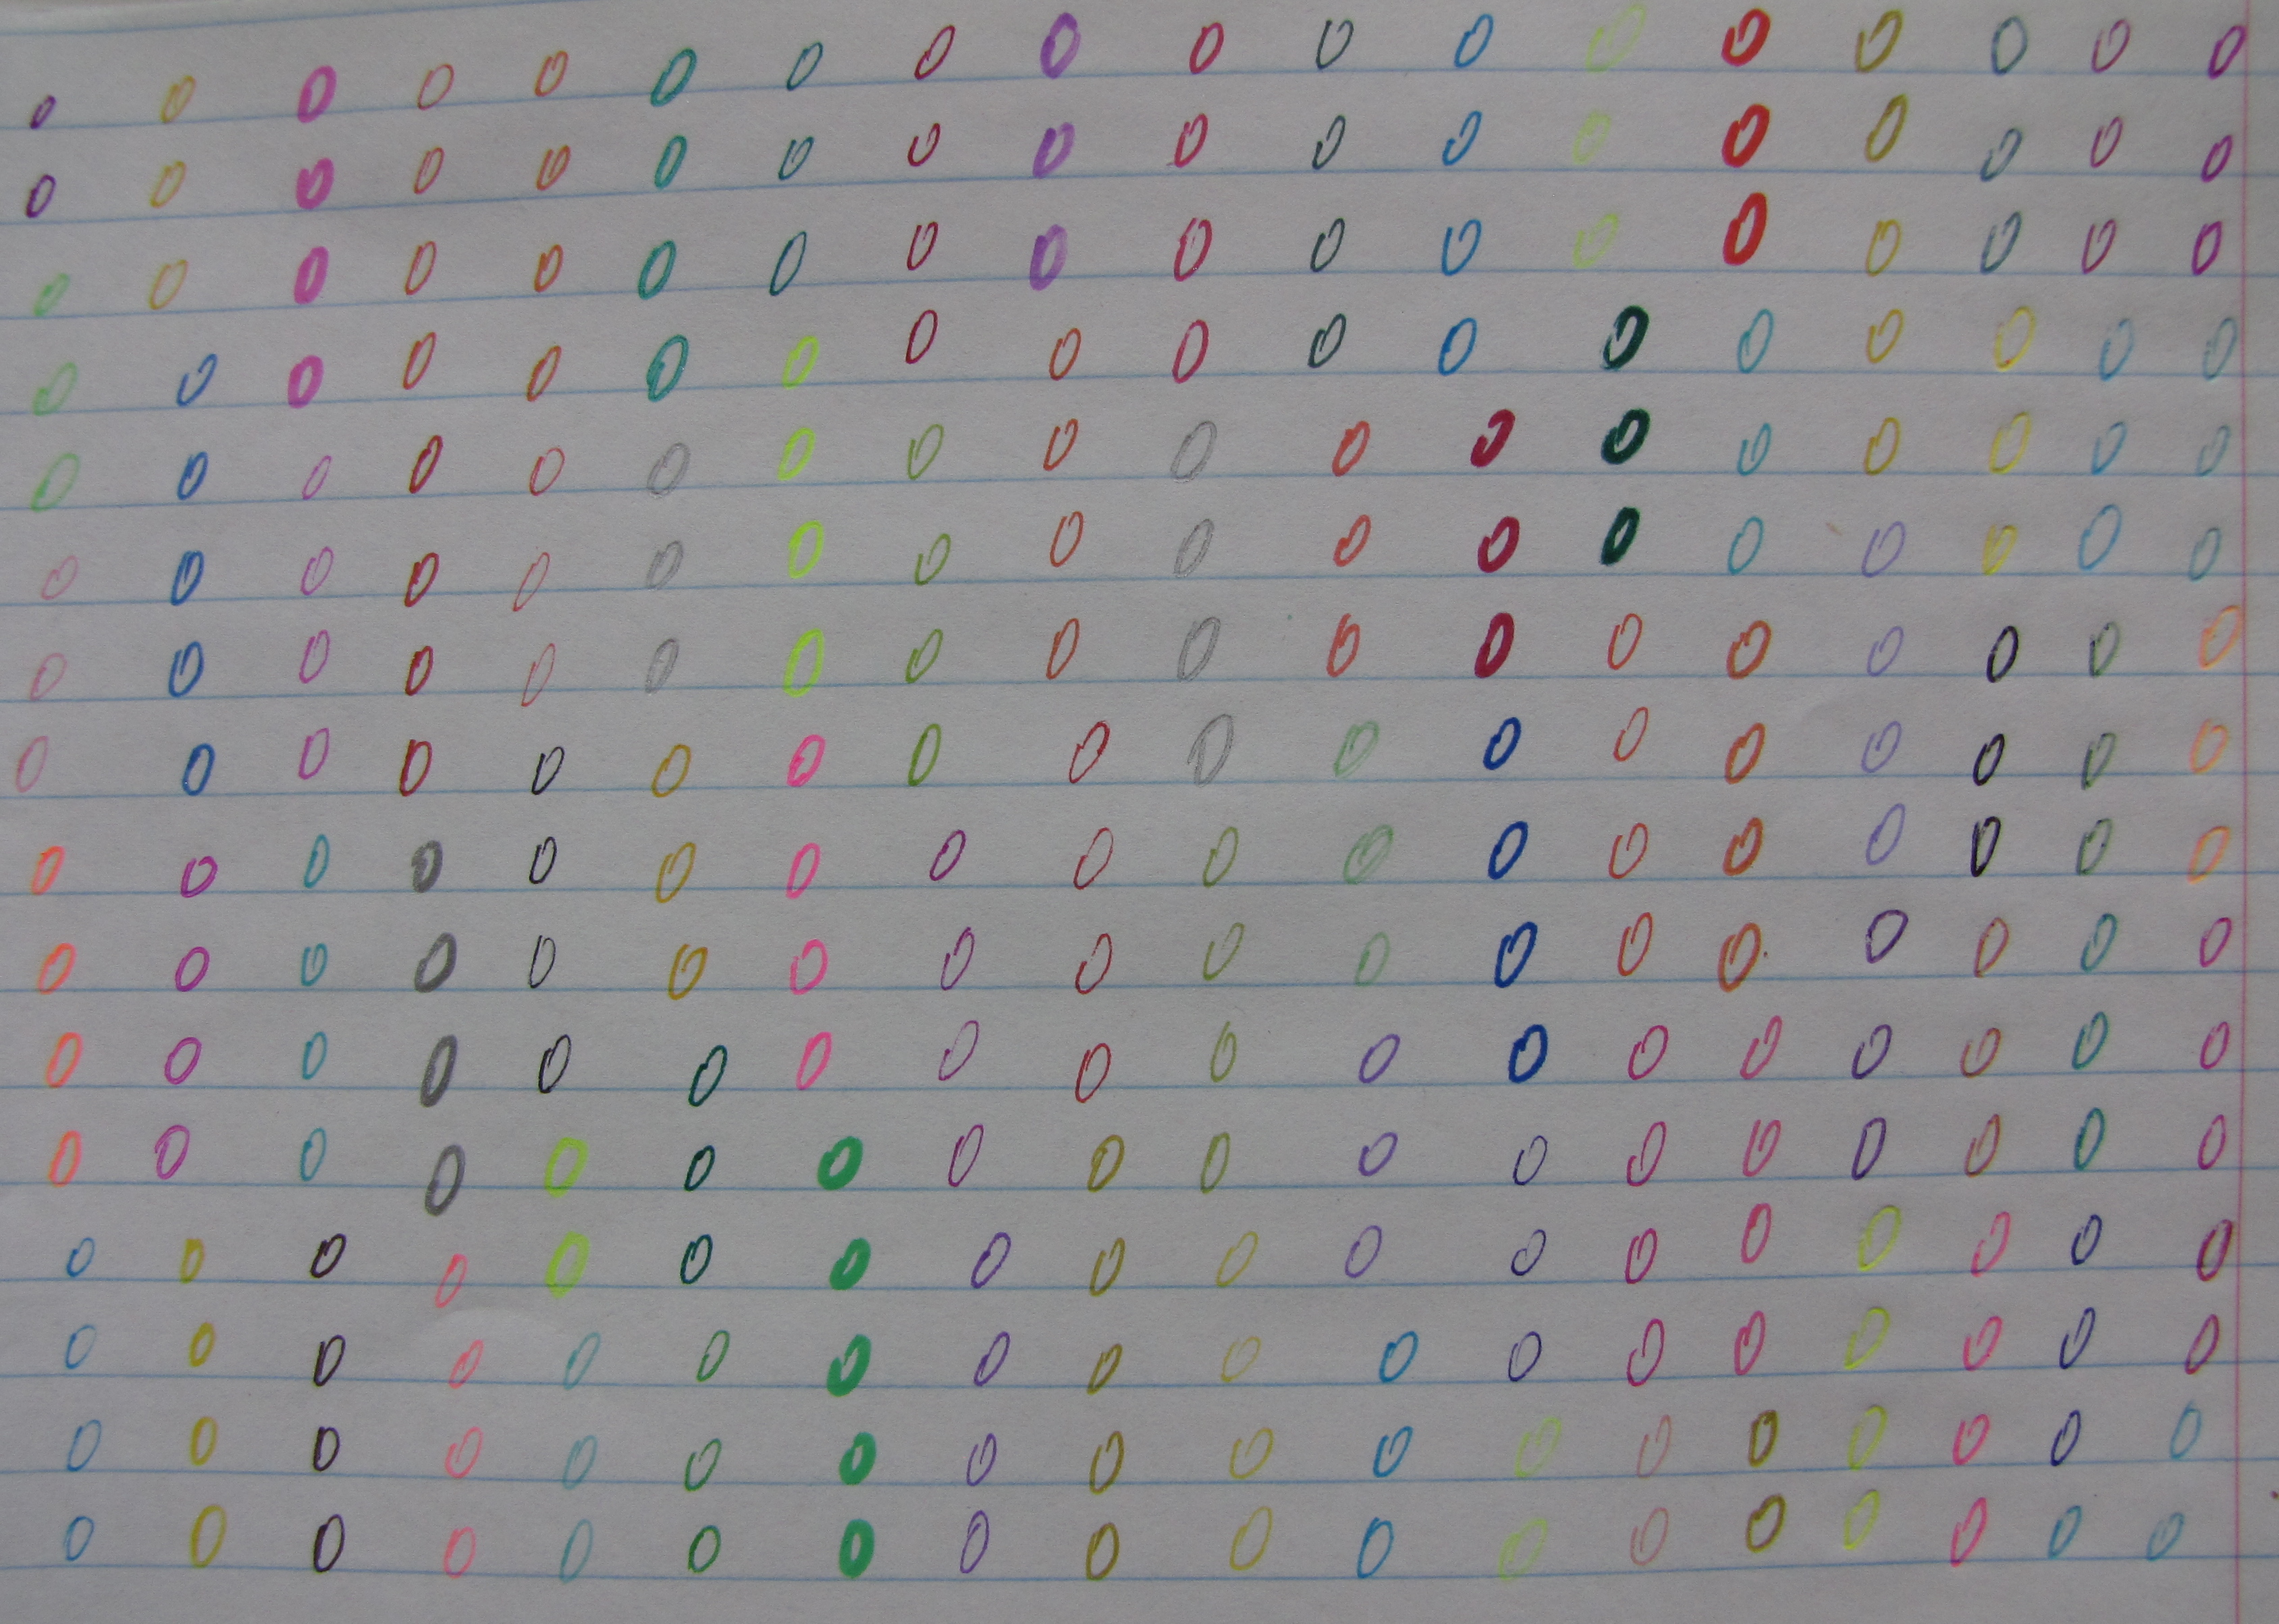 0 0 0 0 0 0 0 0 0 0 0 0 0 0 0 0 0 0
0 0 0 0 0 0 0 0 0 0 0 0 0 0 0 0 0 0
0 0 0 0 0 0 0 0 0 0 0 0 0 0 0 0 0 0
0 0 0 0 0 0 0 0 0 0 0 0 0 0 0 0 0 0
0 0 0 0 0 0 0 0 0 0 0 0 0 0 0 0 0 0
0 0 0 0 0 0 0 0 0 0 0 0 0 0 0 0 0 0
0 0 0 0 0 0 0 0 0 0 0 0 0 0 0 0 0 0
0 0 0 0 0 0 0 0 0 0 0 0 0 0 0 0 0 0
0 0 0 0 0 0 0 0 0 0 0 0 0 0 0 0 0 0
0 0 0 0 0 0 0 0 0 0 0 0 0 0 0 0 0 0
0 0 0 0 0 0 0 0 0 0 0 0 0 0 0 0 0 0
0 0 0 0 0 0 0 0 0 0 0 0 0 0 0 0 0 0
0 0 0 0 0 0 0 0 0 0 0 0 0 0 0 0 0 0
0 0 0 0 0 0 0 0 0 0 0 0 0 0 0 0 0 0
0 0 0 0 0 0 0 0 0 0 0 0 0 0 0 0 0 0
0 0 0 0 0 0 0 0 0 0 0 0 0 0 0 0 0 0